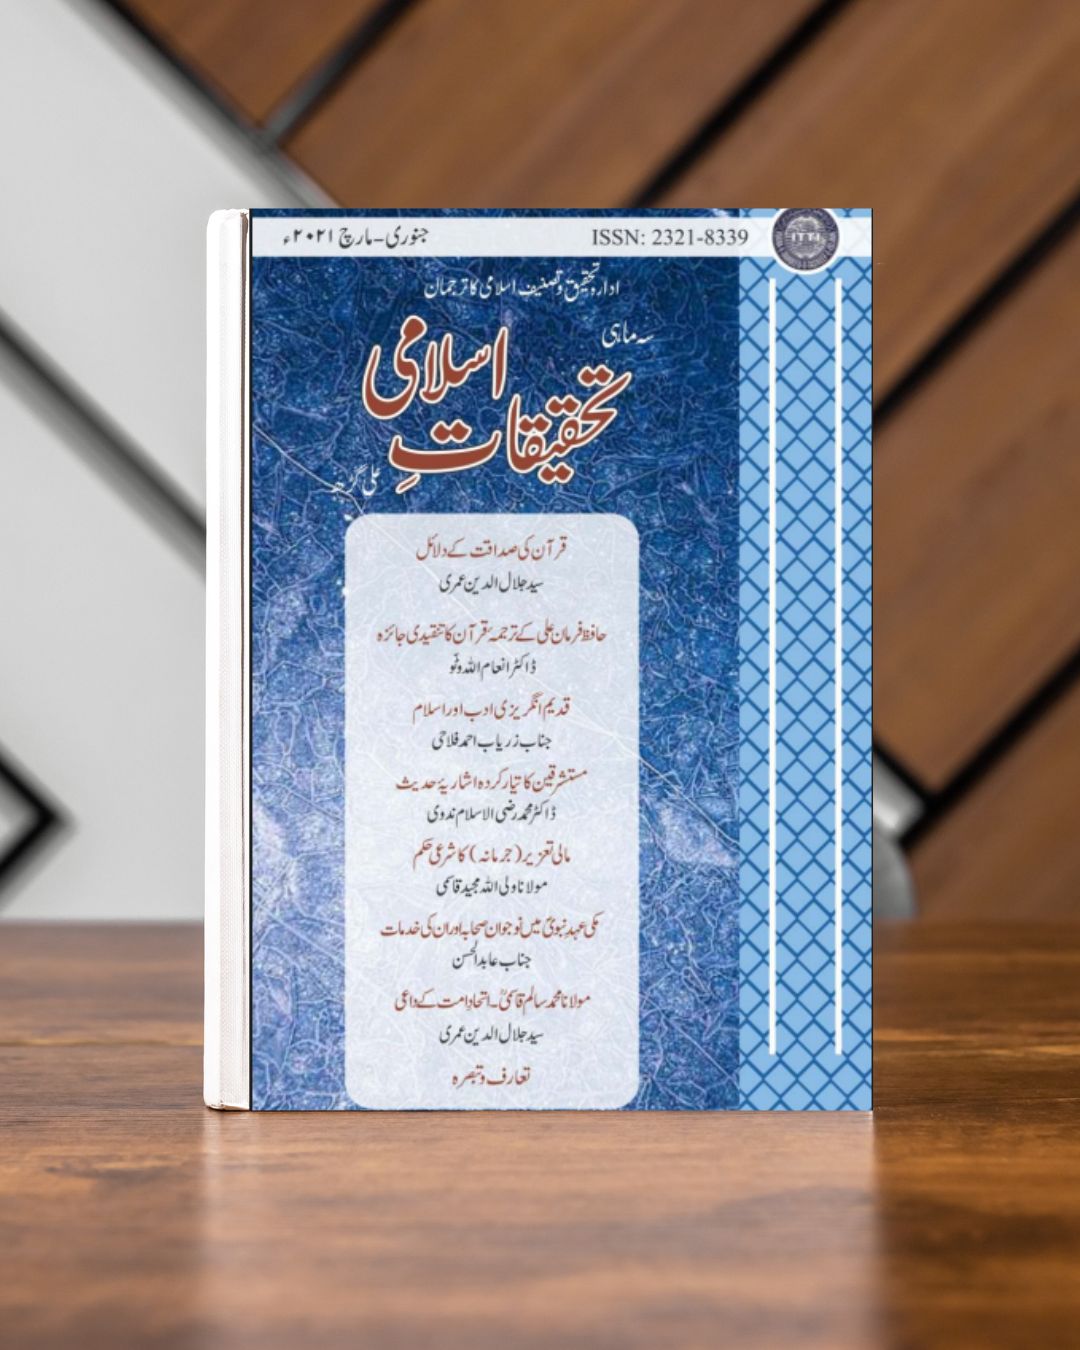 جنوری-مارچ ۲۰۲۱ء
ISSN: 2321-8339
ITTI
ادارہ تحقیق و تصنیف اسلامی کا ترجمان
سہ ماہی
تحقیقاتِ اسلامی
علی گڑھ
قرآن کی صداقت کے دلائل
سید جلال الدین عمری
حافظ فرمان علی کے ترجمۂ قرآن کا تنقیدی جائزہ
ڈاکٹر انعام اللہ وٹو
قدیم انگریزی ادب اور اسلام
جناب زریاب احمد فلاحی
مستشرقین کا تیار کردہ اشاریۂ حدیث
ڈاکٹر محمد رضی الاسلام ندوی
مالی تعزیر (جرمانہ) کا شرعی حکم
مولانا ولی اللہ مجید قاسمی
مکی عہدِ نبویؐ میں نوجوان صحابہ اور ان کی خدمات
جناب عابد الحسن
مولانا محمد سالم قاسمیؒ۔ اتحادِ امت کے داعی
سید جلال الدین عمری
تعارف و تبصرہ